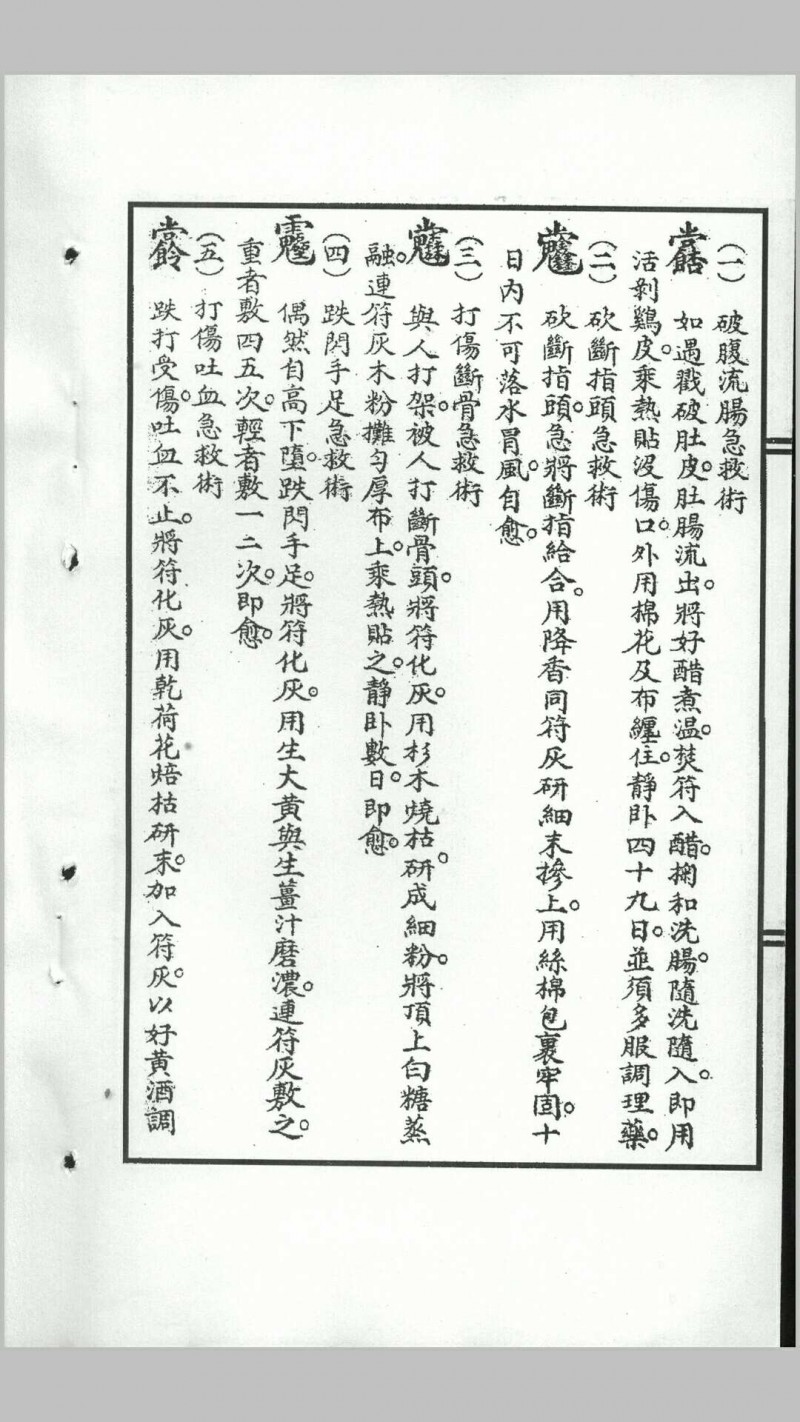 (一)破腹流腸急救術
如遇戳破肚皮。肚腸流出。將好醋煮温。焚符入醋。搁和洗腸。隨洗隨入。即用
活剝鷄皮。乘熱貼没傷口。外用棉花及布纏住。靜卧四十九日。並須多服調理藥。
(二)砍斷指頭急救術
砍斷指頭。急將斷指給合。用降香同符灰研細末摻上。用絲棉包裹牢固。十
日内不可落水冒風。自愈。
(三)打傷斷骨急救術
與人打架。被人打斷骨頭。將符化灰。用杉木燒枯。研成細粉。將頂上白糖蒸
融。連符灰木粉攤匀厚布上。乘熱貼之。靜卧數日。即愈。
(四)跌閃手足急救術
偶然自高下墮。跌閃手足。將符化灰。用生大黄與生薑汁磨濃。連符灰敷之。
重者敷四五次。輕者敷一二次。即愈。
(五)打傷吐血急救術
跌打受傷。吐血不止。將符化灰。用乾荷花焙枯研末。加入符灰。以好黄酒調